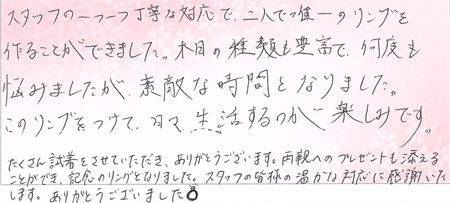 スタッフの一つ一つ丁寧な対応で、二人で唯一のリングを
作ることができました。木目の種類も豊富で、何度も
悩みましたが、素敵な時間となりました。
このリングをつけて、日々、生活するのが楽しみです。
たくさん試着をさせていただき、ありがとうございます。両親へのプレゼントも添える
ことができ、記念のリングとなりました。スタッフの皆様の温かな対応に感謝いた
します。ありがとうございました